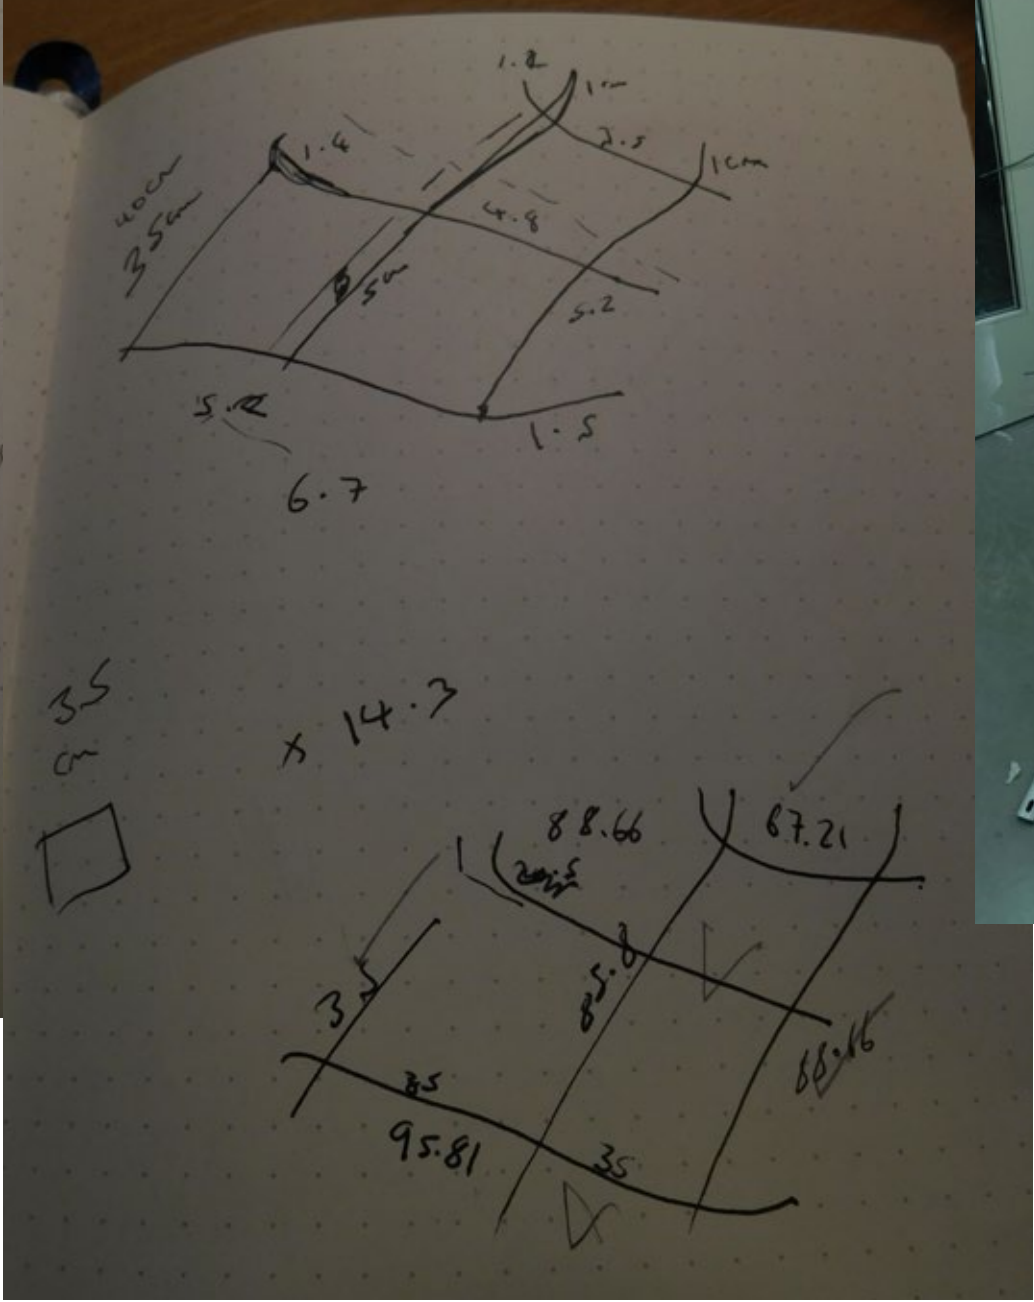 1.2
1cm
2.5
1cm
1.4
40cm
35cm
4.8
5cm
5.2
5.2
1.5
6.7
35
cm
x 14.3
88.66
67.21
35
85.8
88.66
35
95.81
35